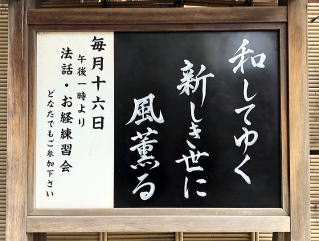 和してゆく
新しき世に
風薫る
毎月十六日
午後一時より
法話・お経練習会
どなたでもご参加下さい